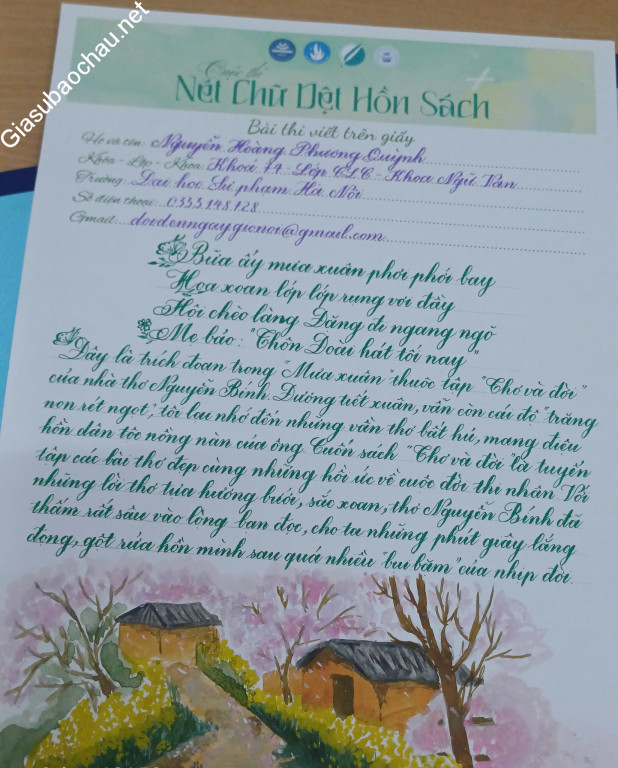 Giasubaochau.net
Cuộc thi
Nét Chữ Dệt Hồn Sách
Bài thi viết trên giấy
Họ và tên: Nguyễn Hoàng Phương Quỳnh
Khóa - Lớp - Khoa: Khoá 74 - Lớp CLC - Khoa Ngữ Văn
Trường: Đại học Sư phạm Hà Nội
Số điện thoại: 0333.148.128
Gmail: doidenngaygionoi@gmail.com
Bữa ấy mưa xuân phơi phới bay
Hoa xoan lớp lớp rụng vơi đầy
Hội chèo làng Đặng đi ngang ngõ
Mẹ bảo: "Thôn Đoài hát tối nay"
Đây là trích đoạn trong "Mưa xuân" thuộc tập "Thơ và đời"
của nhà thơ Nguyễn Bính. Đương tiết xuân, vẫn còn cái độ "trăng
non rét ngọt", tôi lại nhớ đến những vần thơ bất hủ, mang điệu
hồn dân tộc nồng nàn của ông. Cuốn sách "Thơ và đời" là tuyển
tập các bài thơ đẹp cùng những hồi ức về cuộc đời thi nhân. Với
những lời thơ tựa hương bưởi, sắc xoan, thơ Nguyễn Bính đã
thấm rất sâu vào lòng bạn đọc, cho ta những phút giây lắng
đọng, gột rửa hồn mình sau quá nhiều "bụi bặm" của nhịp đời.